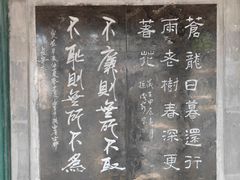 蒼龍日暮還行
雨老樹春深更
著花
不廉則無所不取
不恥則無所不為